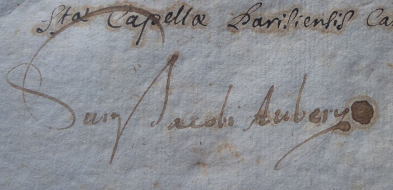 Stæ Capellæ Parisiensis Ca
Sum Jacobi Aubery